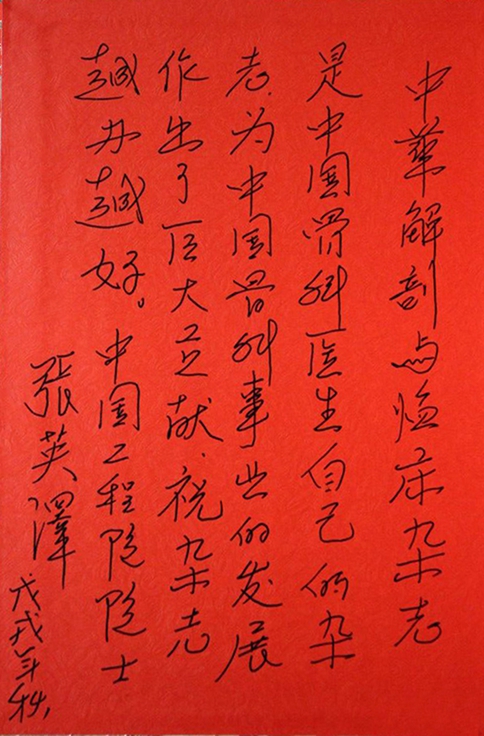 中华解剖与临床杂志
是中国骨科医生自己的杂
志.为中国骨科事业的发展
作出了巨大贡献.祝杂志
越办越好。中国工程院院士
張英澤
戊戌年秋